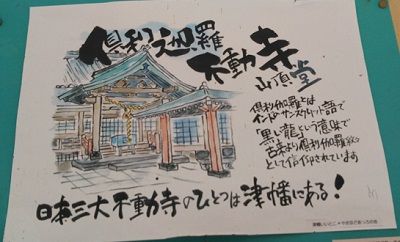 倶利迦羅
不動寺
山頂堂
倶利伽羅とは
インドサンスクリット語で
「黒い龍」という意味で
古来より倶利伽羅
として信仰されています
日本三大不動寺のひとつは津幡にある!
津幡いいとこ